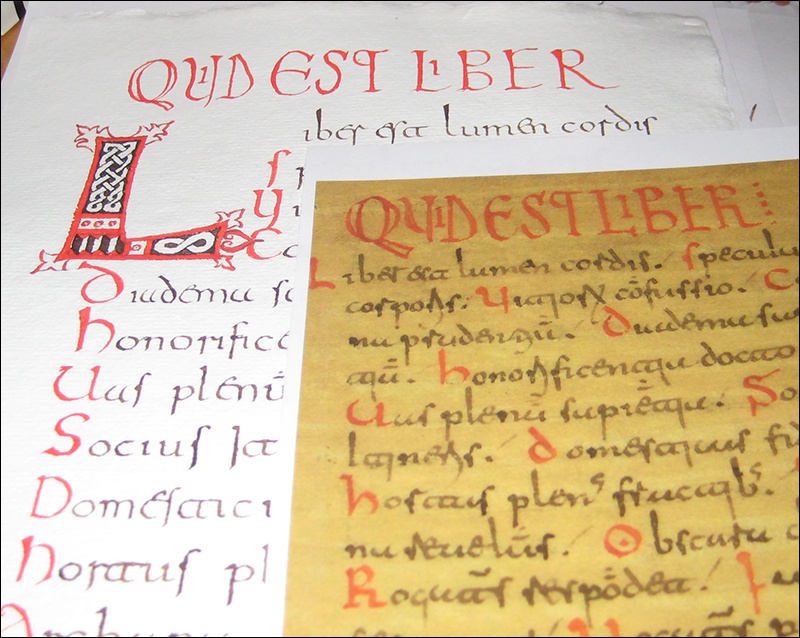 QUID EST LIBER
Liber est lumen cordis
S
U
Co
Diadema sa
honorifice
Uas plenū
Socius It
Domestici
hortus pl
QUID EST LIBER
Liber est lumen cordis. Speculu
corporis. Uitiorꝝ cōfussio. C
na prudentiū. Diadema sa
tiū. honorificentia docto
Uas plenū sapiētia. So
Itineris. domesticus fid
hortus plens fructib.
na reuelās. Obscura c
Rogatus respōdet. I